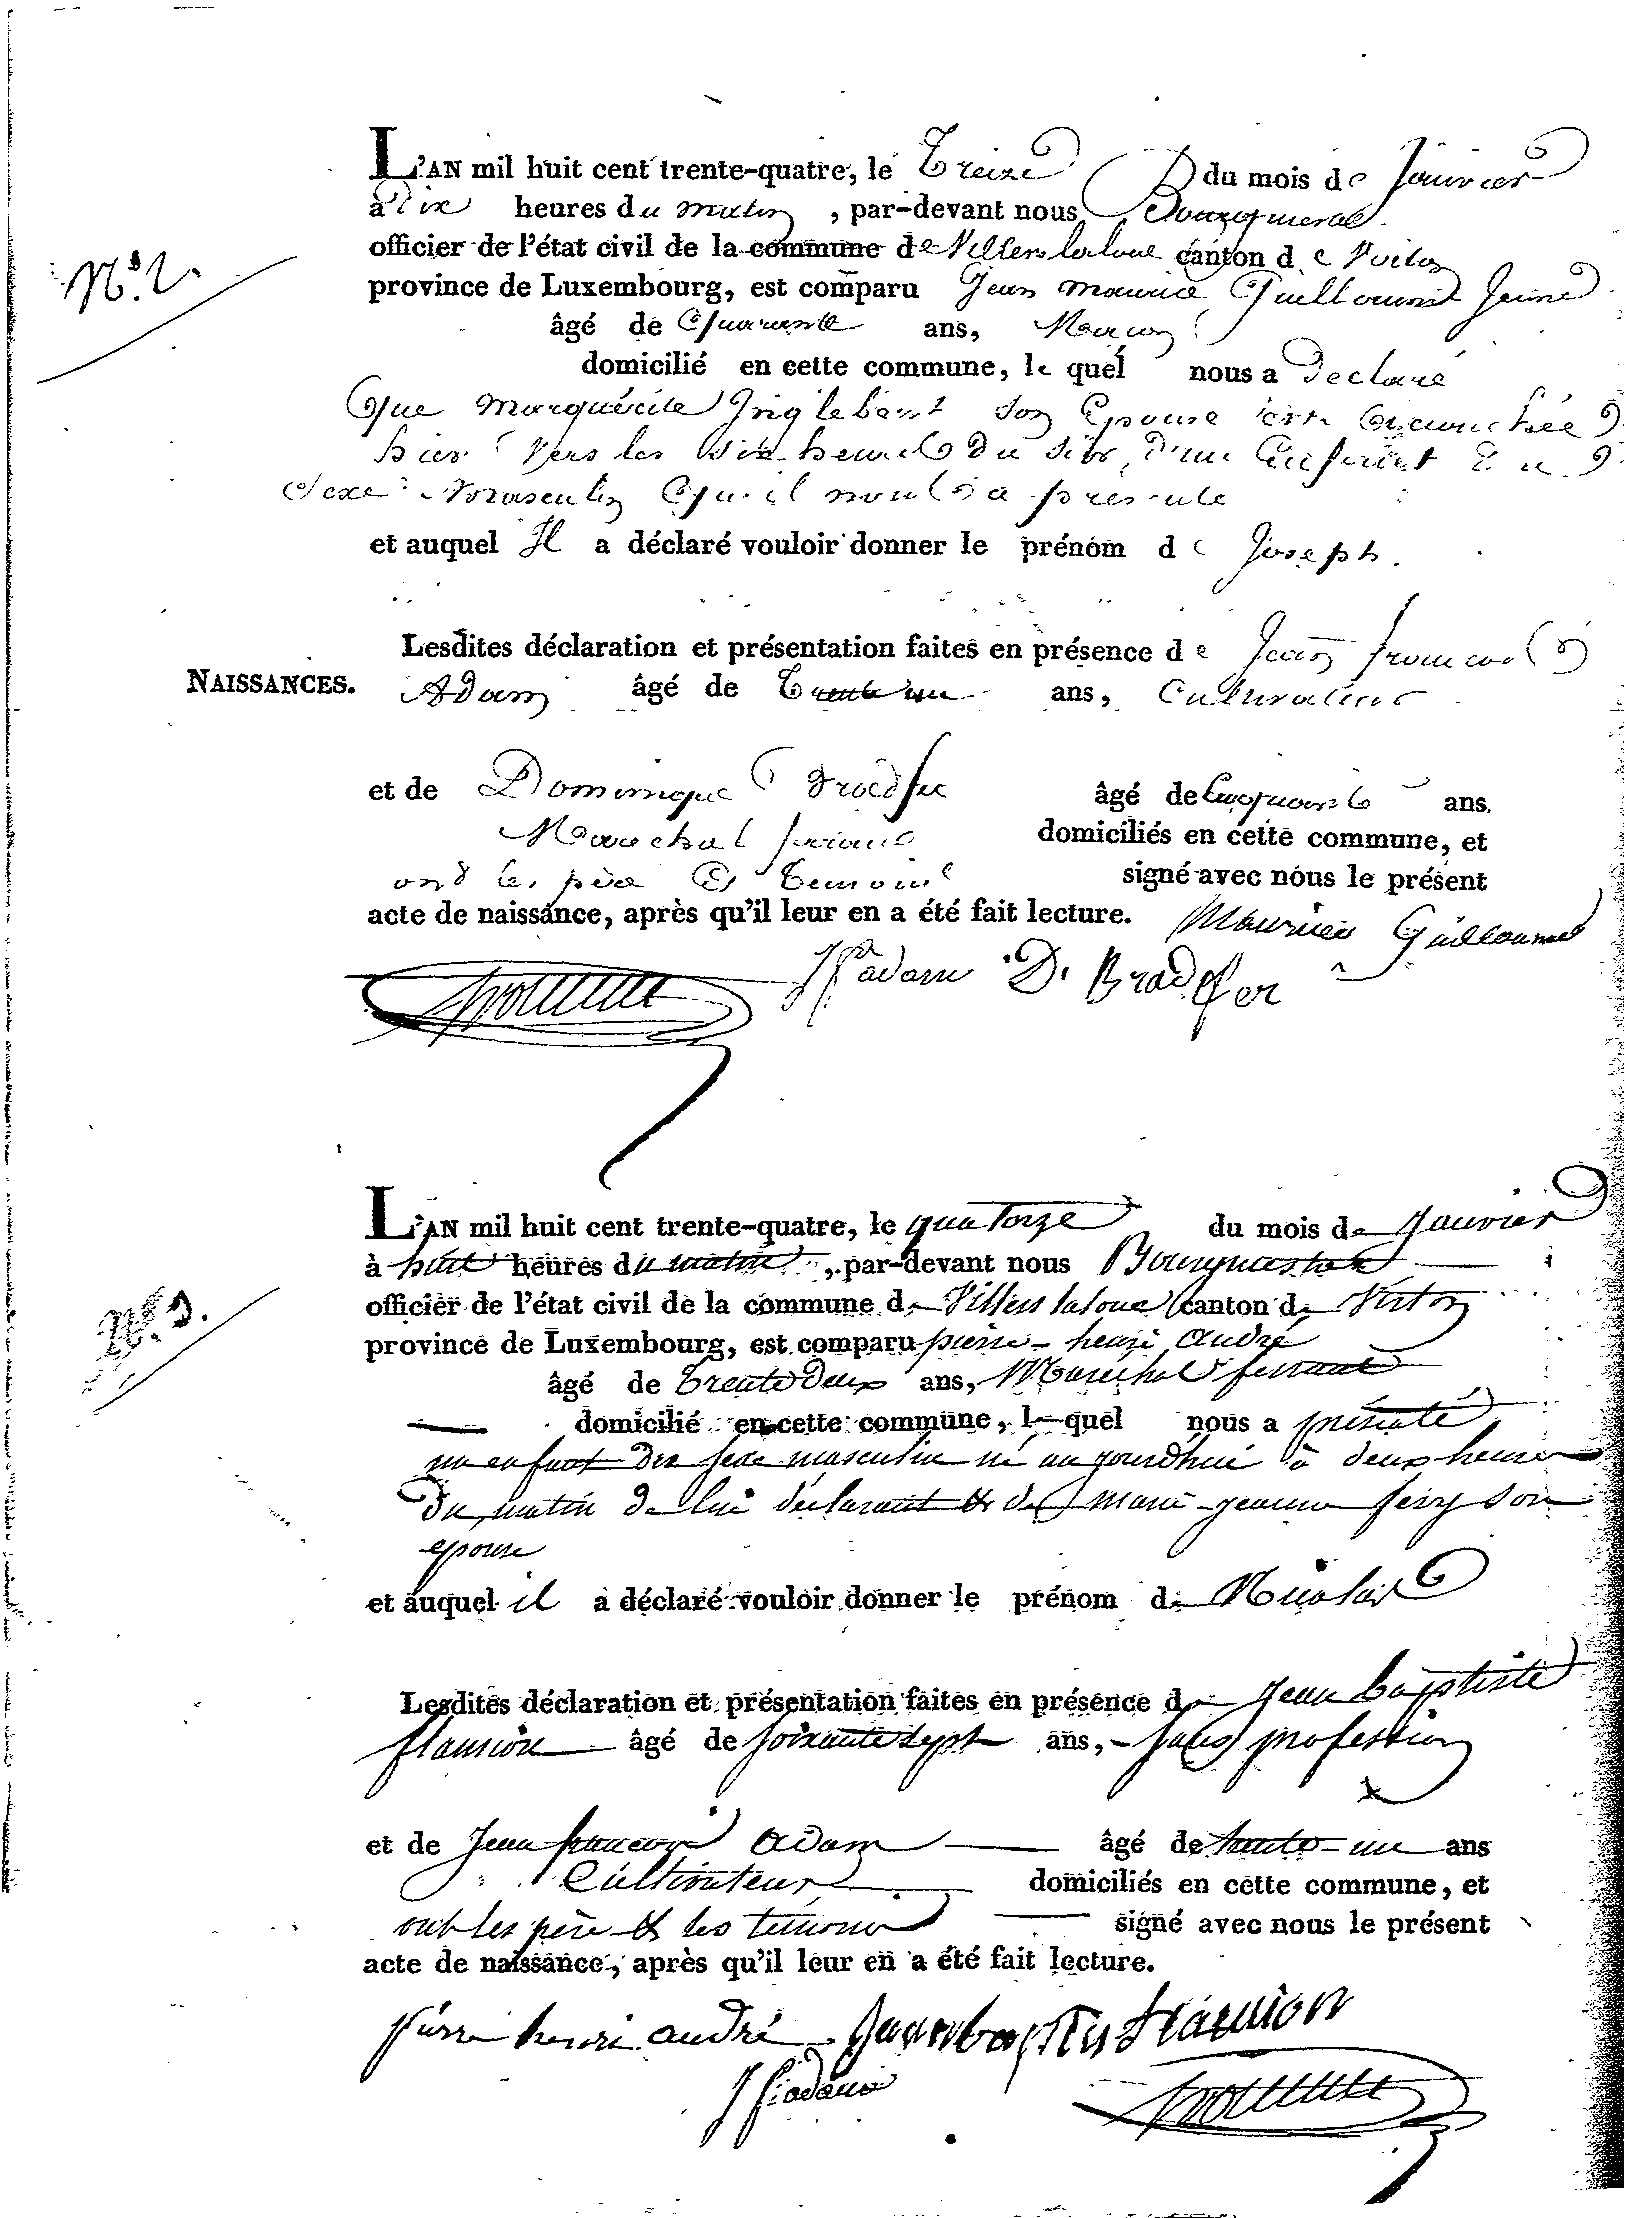 L'AN mil huit cent trente-quatre, le Treize du mois de Janvier
à Dix heures du matin, par-devant nous Bourgmestre
officier de l'état civil de la commune de Villers laloue canton de Virton
province de Luxembourg, est comparu Jean Maurice Guillaume Jeune
N° 2.
âgé de Quarante ans, Maçon
domicilié en cette commune, le quel nous a Declaré
Que Marguerite Inglebert Son Epouse est accouchée
hier vers les Six heures Du Soir, d'un Enfant Du
Sexe Masculin Qu'il nous a présenté
et auquel Il a déclaré vouloir donner le prénom de Joseph.
Lesdites déclaration et présentation faites en présence de Jean françois
NAISSANCES.
Adam âgé de Trente un ans, Cultivateur
et de Dominique Bradfer âgé de Cinquante ans.
Marechal ferrant domiciliés en cette commune, et
ont les père Et Temoins signé avec nous le présent
acte de naissance, après qu'il leur en a été fait lecture. Maurice Guillaume
Jf adam D. Bradfer
L'AN mil huit cent trente-quatre, le quatorze du mois de Janvier
à huit heures du matin, par-devant nous Bourgmestre
officier de l'état civil de la commune de Villers laloue canton de Virton
N° 3.
province de Luxembourg, est comparu pierre-henri andré
âgé de Trente Deux ans, Maréchal ferrant
domicilié en cette commune, le quel nous a présenté
un enfant du sexe masculin né aujourdhui à deux heures
Du matin de lui déclarant & de marie-jeanne fery son
epouse
et auquel il a déclaré vouloir donner le prénom de Nicolas
Lesdites déclaration et présentation faites en présence de Jean baptiste
flamion âgé de soixante sept ans, sans profession
et de Jean françois adam âgé de trente-un ans
Cultivateur domiciliés en cette commune, et
ont les père & les témoins signé avec nous le présent
acte de naissance, après qu'il leur en a été fait lecture.
pierre henri andré Jean baptiste flamion
Jf adam